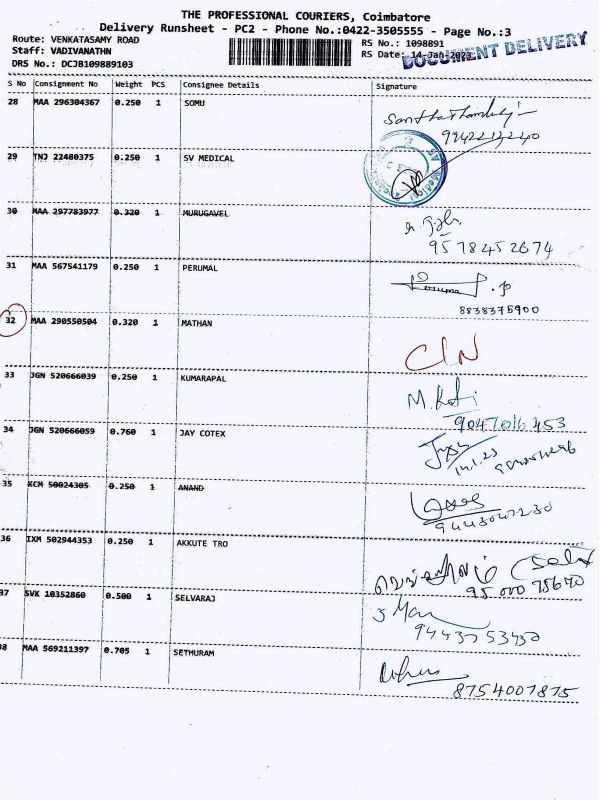 THE PROFESSIONAL COURIERS, Coimbatore
Delivery Runsheet - PC2 - Phone No.:0422-3505555 - Page No.:3
Route: VENKATASAMY ROAD
RS No.: 1098891
Staff: VADIVANATHN
RS Date: 14-Jan-2023
DOCUMENT DELIVERY
DRS No.: DCJB109889103
S No Consignment No Weight PCS Consignee Details Signature
28 MAA 296304367 0.250 1 SOMU
29 TNJ 22480375 0.250 1 SV MEDICAL
30 MAA 297783977 0.320 1 MURUGAVEL
9578452674
31 MAA 567541179 0.250 1 PERUMAL
Perumal . P
8838375900
32 MAA 290550504 0.320 1 MATHAN
CIN
33 JGN 520666039 0.250 1 KUMARAPAL
9047016453
34 JGN 520666059 0.760 1 JAY COTEX
14.1.23
35 KCM 50024305 0.250 1 ANAND
9443047230
36 IXM 502944353 0.250 1 AKKUTE TRO
95000 75640
37 SVK 10352860 0.500 1 SELVARAJ
9443753450
38 MAA 569211397 0.705 1 SETHURAM
8754007875